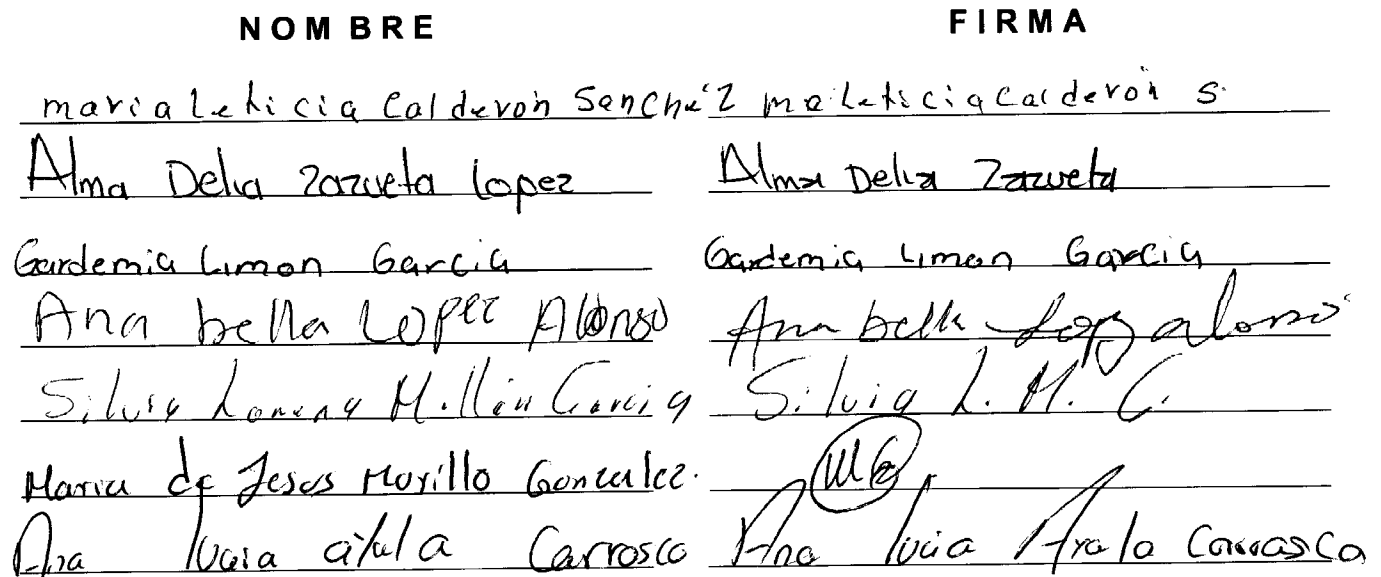 NOMBRE FIRMA
maria Leticia Calderon Sanchez ma leticia Calderon S.
Alma Delia Zazueta Lopez Alma Delia Zazueta
Gardemia Limon Garcia Gardemia Limon Garcia
Ana bella Lopez Alonso Ana bella Lopez alonso
Silvia Lorena Millán Garcia Silvia L. M. G.
Maria de Jesus Morillo Gonzalez.
Ana lucia ayala Carrasco Ana lucia Ayala Carrasco